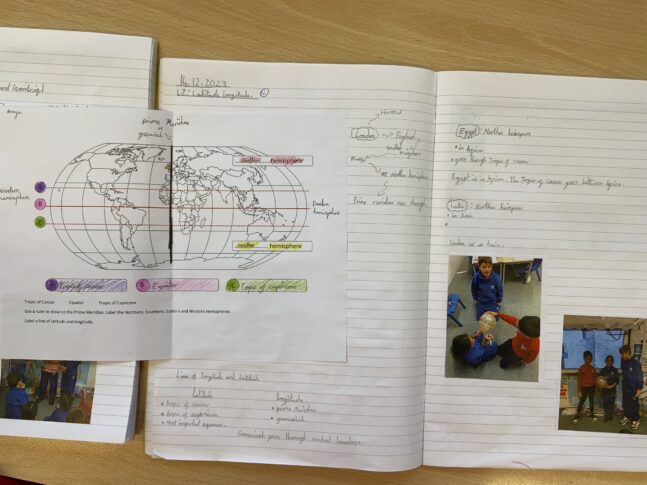 14.12.2023
L.I: Latitude longitude.
prime Meridian
or
greenwich
hemisphere
hemisphere
hemisphere
A
B
C
A Tropic of cancer
B Equator
C Tropic of capricorn
Tropic of Cancer Equator Tropic of Capricorn
Use a ruler to draw on the Prime Meridian. Label the Northern, Southern, Eastern and Western hemispheres.
Label a line of latitude and longitude.
London
England
united
kingdom
Europe
Northern hemisphere
Prime meridian run through
Lines of longitude and latitude
latitude
tropic of cancer
tropic of capricorn
Most important equator.
longitude
prime Meridian
greenwich
Greenwich goes through central London.
Egypt: Northern
in
goes through Tropic of cancer
Egypt is in The Tropic of Cancer goes between
India: Northern
in